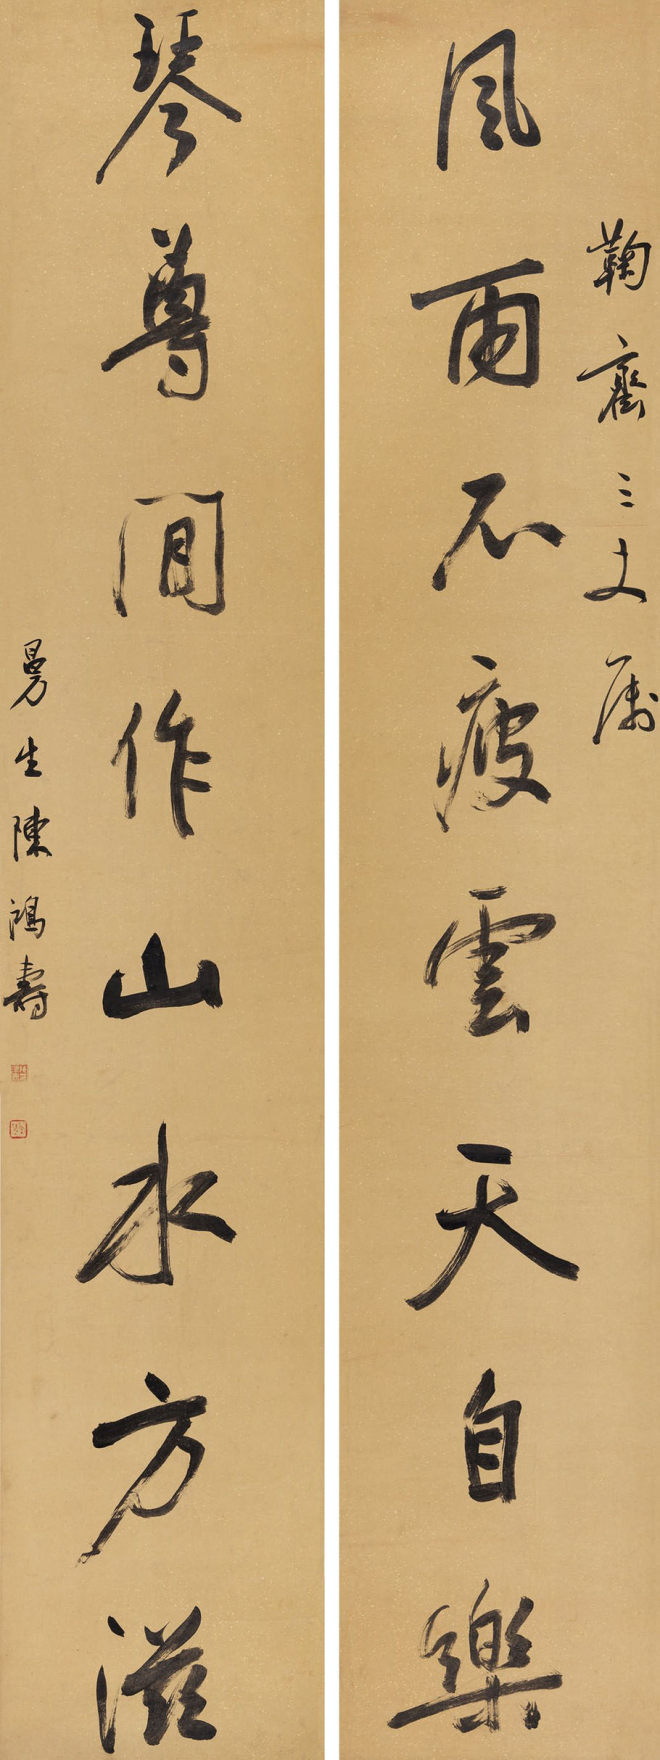 鞠三丈属
風雨不疲雲天自樂
琴尊閒作山水方滋
曼生陳鴻壽